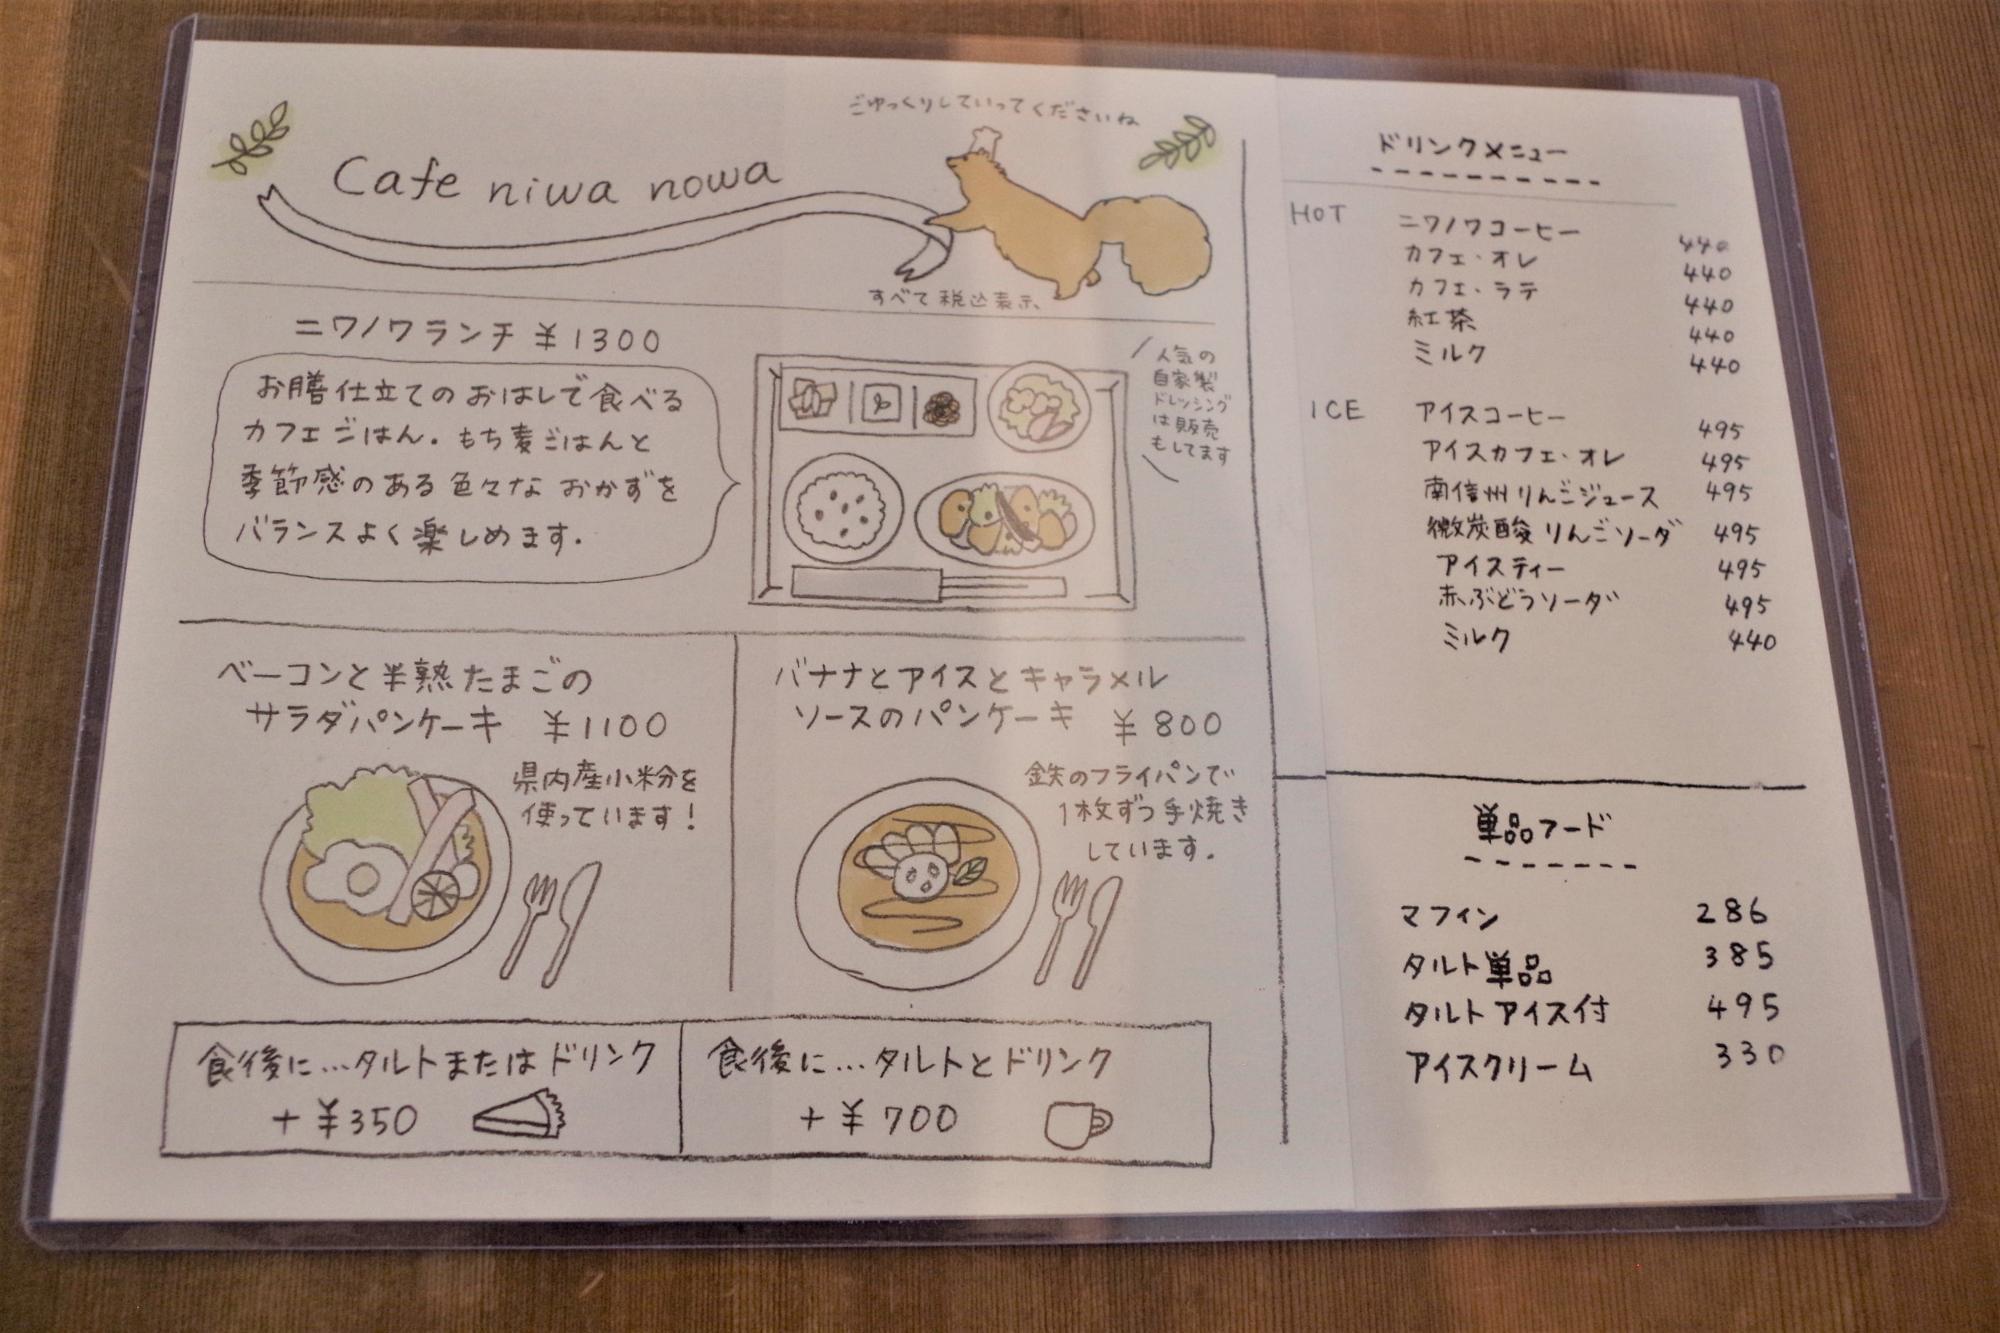 ごゆっくりしていってくださいね
Cafe niwa nowa
すべて税込表示
ニワノワランチ ¥1300
お膳仕立てのおはしで食べる
カフェごはん。もち麦ごはんと
季節感のある色々なおかずを
バランスよく楽しめます。
人気の
自家製
ドレッシング
は販売
もしてます
ベーコンと半熟たまごの
サラダパンケーキ ¥1100
県内産小粉を
使っています!
バナナとアイスとキャラメル
ソースのパンケーキ ¥800
鉄のフライパンで
1枚ずつ手焼き
しています。
食後に…タルトまたはドリンク
+¥350
食後に…タルトとドリンク
+¥700
ドリンクメニュー
HOT ニワノワコーヒー 440
カフェ・オレ 440
カフェ・ラテ 440
紅茶 440
ミルク 440
ICE アイスコーヒー 495
アイスカフェ・オレ 495
南信州りんごジュース 495
微炭酸りんごソーダ 495
アイスティー 495
赤ぶどうソーダ 495
ミルク 440
単品フード
マフィン 286
タルト単品 385
タルトアイス付 495
アイスクリーム 330